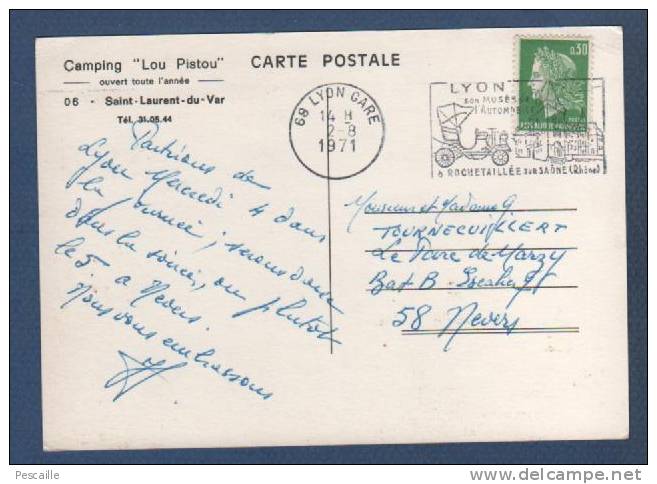 Camping "Lou Pistou"
ouvert toute l'année
06 - Saint-Laurent-du-Var
Tél. 31.05.44
CARTE POSTALE
69 LYON GARE
14 H
2-8
1971
LYON
son MUSÉE
l'AUTOMOBILE
à ROCHETAILLÉE sur SAÔNE (Rhône)
0,30
POSTES
Partirons de
Lyon Mercredi 4 dans
la journée ; serons donc
dans la soirée, ou plutôt
le 5 a Nevers.
Nous vous embrassons
Monsieur et Madame G
TOURNECUILLERT
Le Parc de Marzy
Bat B - Escalier
58 Nevers
Pescaille
www.delcampe.net